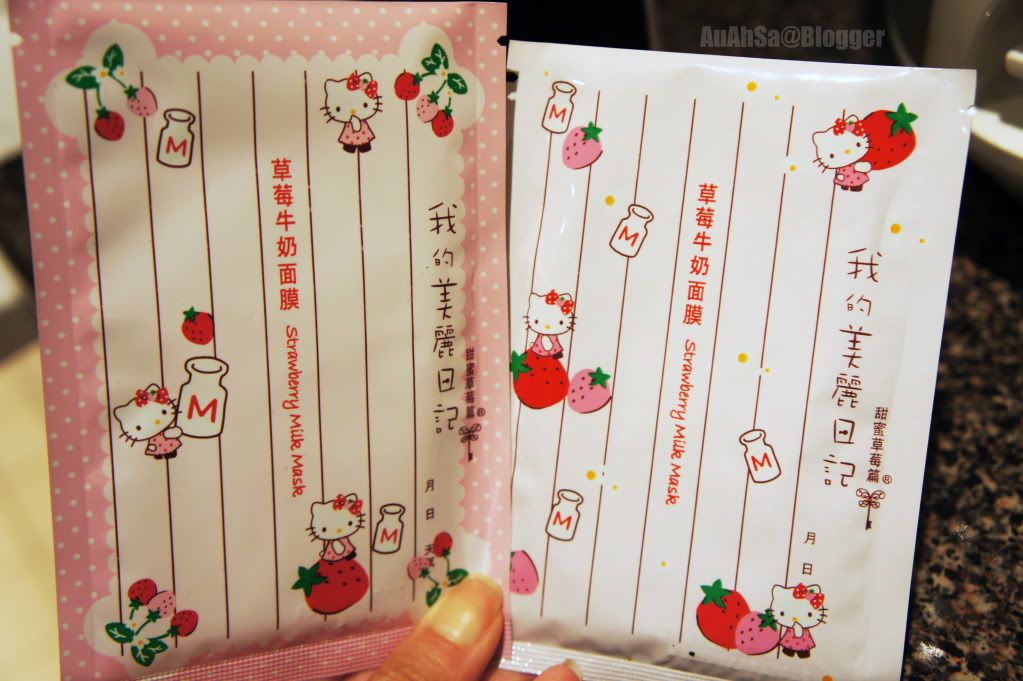 AuAhSa@Blogger
M
草莓牛奶面膜 Strawberry Milk Mask
我的美麗日記
甜蜜草莓篇®
M
M
月 日 天
M
M
草莓牛奶面膜 Strawberry Milk Mask
我的美麗日記
甜蜜草莓篇®
M
M
月 日